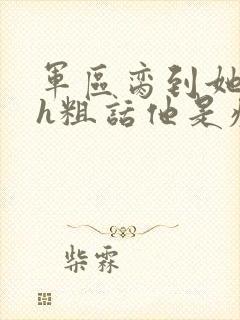 軍區脔到她
h粗話他是
柴霖